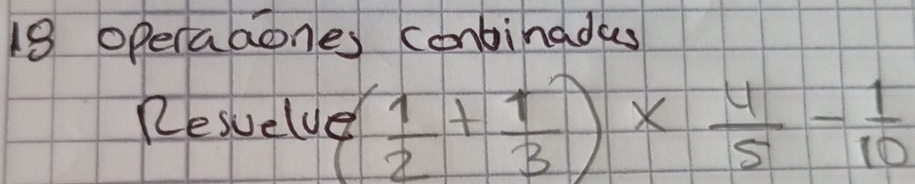 18 operaciones conbinadas
Resuelve (1/2 + 1/3) x 4/5 - 1/10